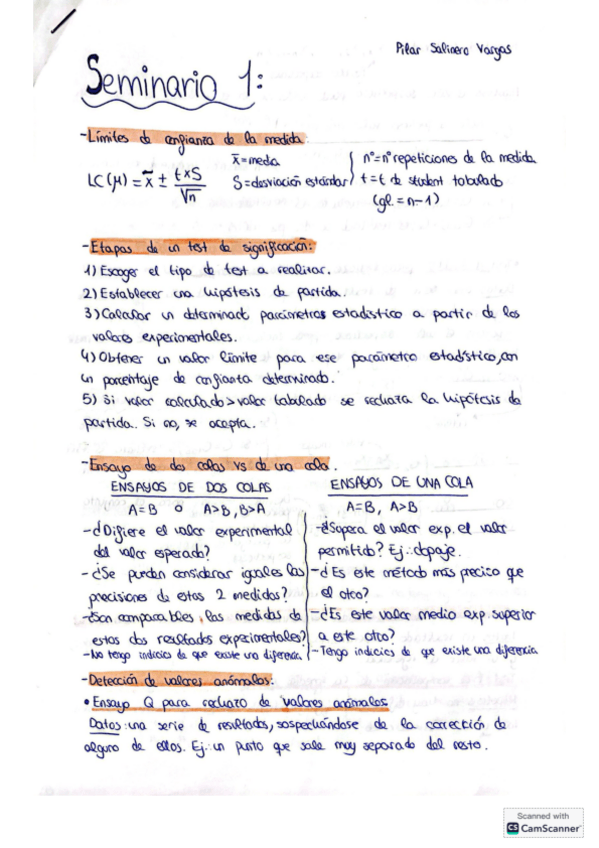 Pilar Salinero Vargas
Seminario 1:
-Límites de confianza de la medida:
LC(μ) = x̄ ± t×S/√n
x̄=media
S=desviación estándar
nº=nº repeticiones de la medida
t=t de student tabulado
(gl.=n-1)
-Etapas de un test de significación:
1) Escoger el tipo de test a realizar.
2) Establecer una hipótesis de partida.
3) Calcular un determinad parámetros estadístico a partir de los
valores experimentales.
4) Obtener un valor límite para ese parámetro estadístico, con
un porcentaje de confianza determinado.
5) Si valor calculado > valor tabulado se rechaza la hipótesis de
partida. Si no, se acepta.
-Ensayo de dos colas vs de una cola.
ENSAYOS DE DOS COLAS
A=B o A>B, B>A
-¿Difiere el valor experimental
del valor esperado?
-¿Se pueden considerar iguales las
precisiones de estas 2 medidas?
-¿Son comparables las medidas de
estos dos resultados experimentales?
-No tengo indicios de que existe una diferencia.
ENSAYOS DE UNA COLA
A=B, A>B
-¿Supera el valor exp. el valor
permitido? Ej.: dopaje.
-¿Es este método más preciso que
el otro?
-¿Es este valor medio exp. superior
a este otro?
-Tengo indicios de que existe una diferencia
-Detección de valores anómalos:
• Ensayo Q para rechazo de valores anómalos
Datos: una serie de resultados, sospechándose de la corrección de
alguno de ellos. Ej: un punto que sale muy separado del resto.
Scanned with
CS CamScanner